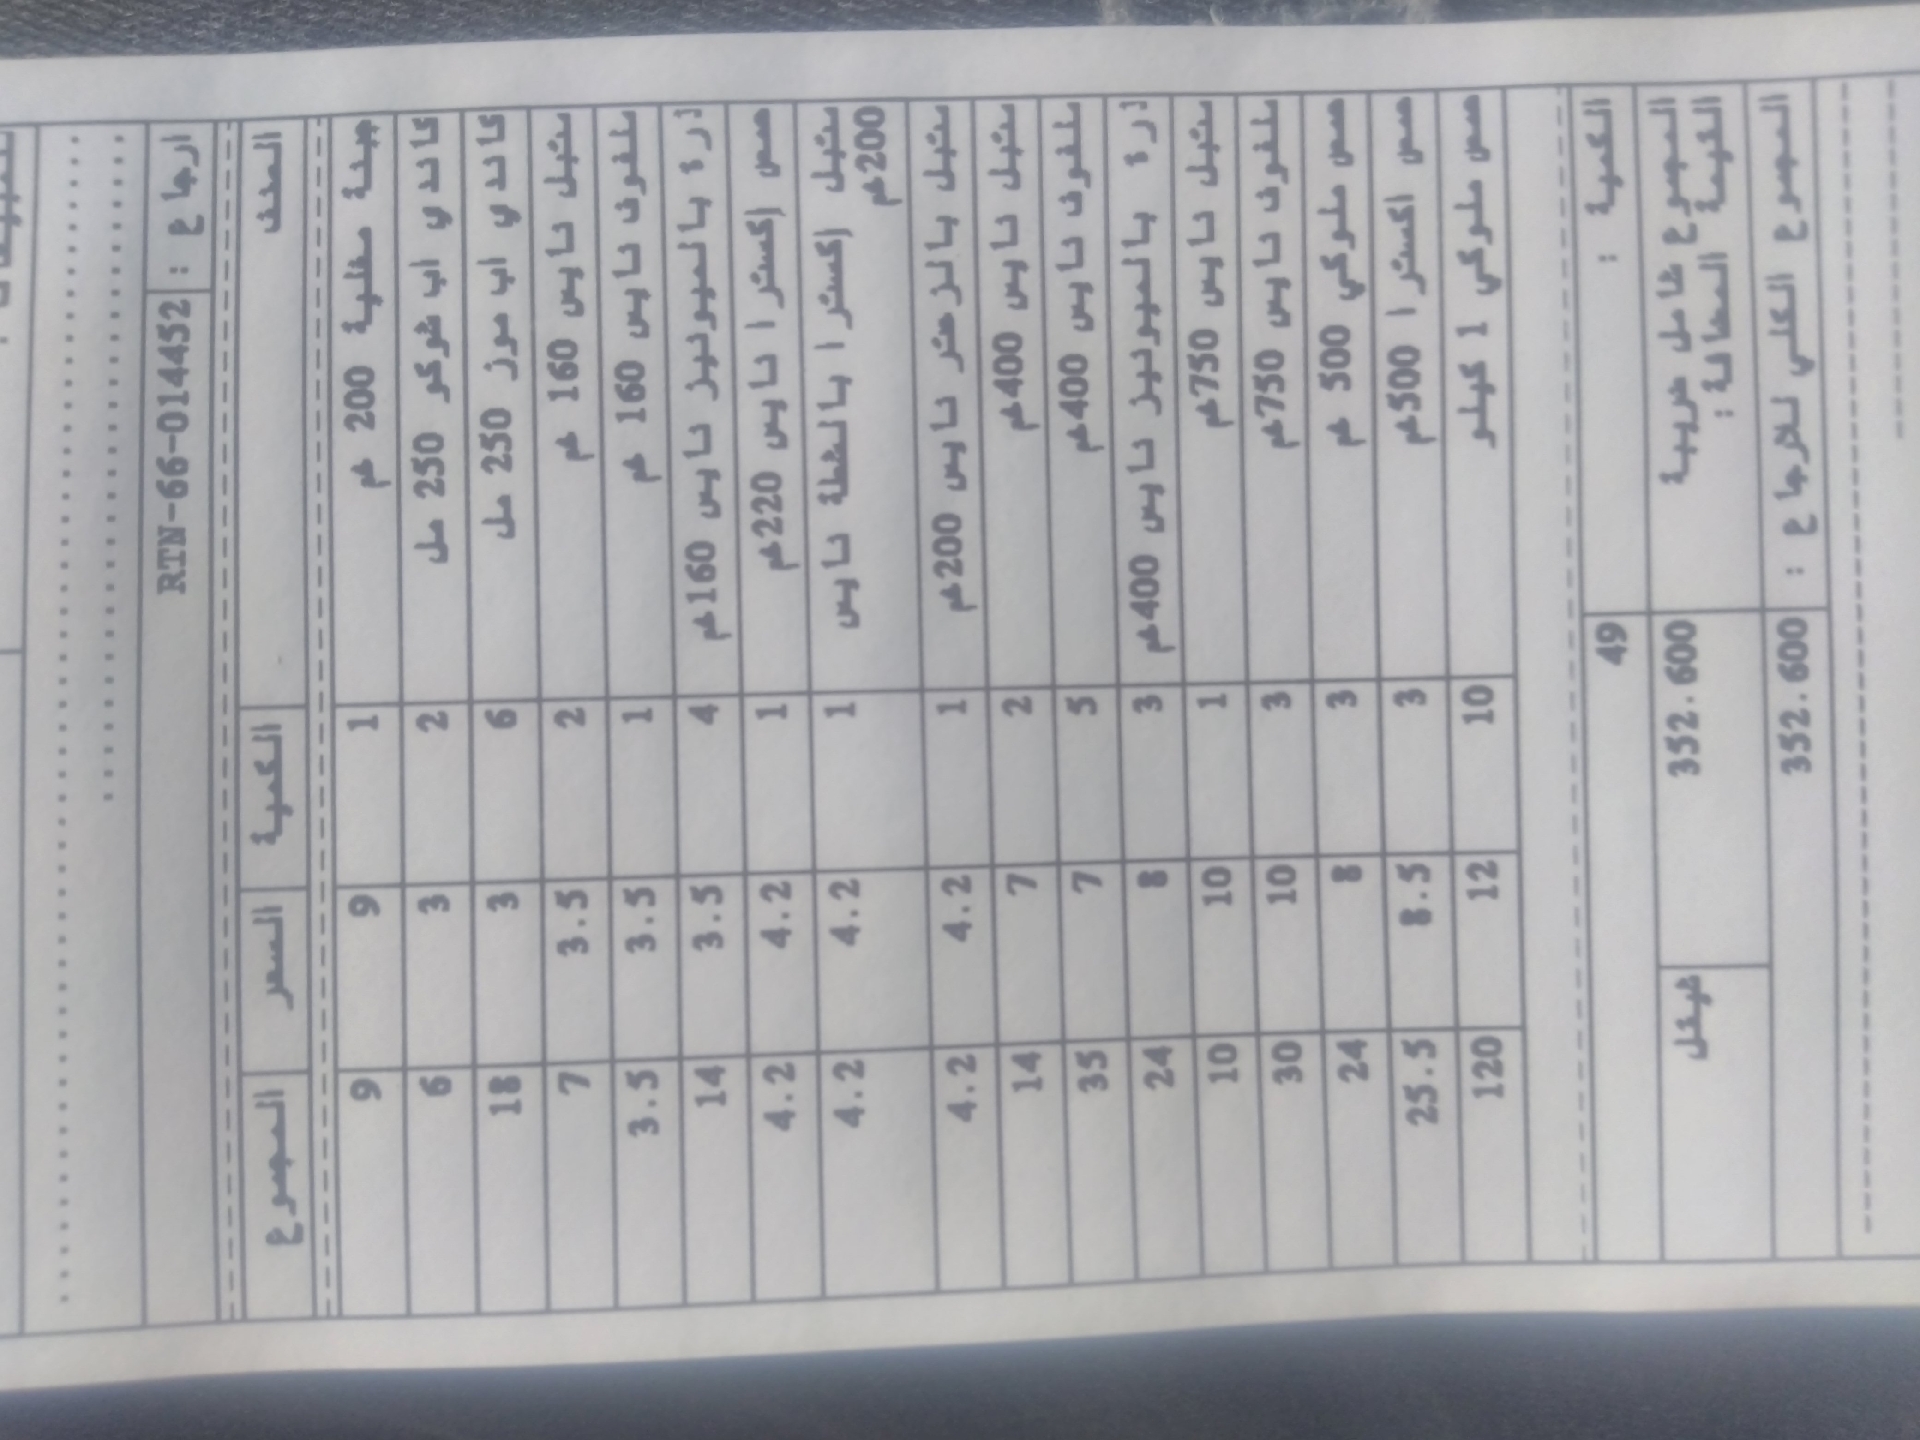 ارجاع : RTN-66-014452
الصنف الكمية السعر المجموع
جبنة مغلية 200 غم 1 9 9
كاندي اب شوكو 250 مل 2 3 6
كاندي اب موز 250 مل 6 3 18
متبل نايس 160 غم 2 3.5 7
ملفوف نايس 160 غم 1 3.5 3.5
ذرة بالميونيز نايس 160غم 4 3.5 14
حمص إكسترا نايس 220غم 1 4.2 4.2
متبل إكسترا بالشطة نايس 1 4.2 4.2
200غم
متبل بالزعتر نايس 200غم 1 4.2 4.2
متبل نايس 400غم 2 7 14
ملفوف نايس 400غم 5 7 35
ذرة بالميونيز نايس 400غم 3 8 24
متبل نايس 750غم 1 10 10
ملفوف نايس 750غم 3 10 30
حمص ملوكي 500 غم 3 8 24
حمص اكسترا 500غم 3 8.5 25.5
حمص ملوكي 1 كيلو 10 12 120
الكمية : 49
المجموع شامل ضريبة 352.600 شيقل
القيمة المضافة :
المجموع الكلي للارجاع : 352.600